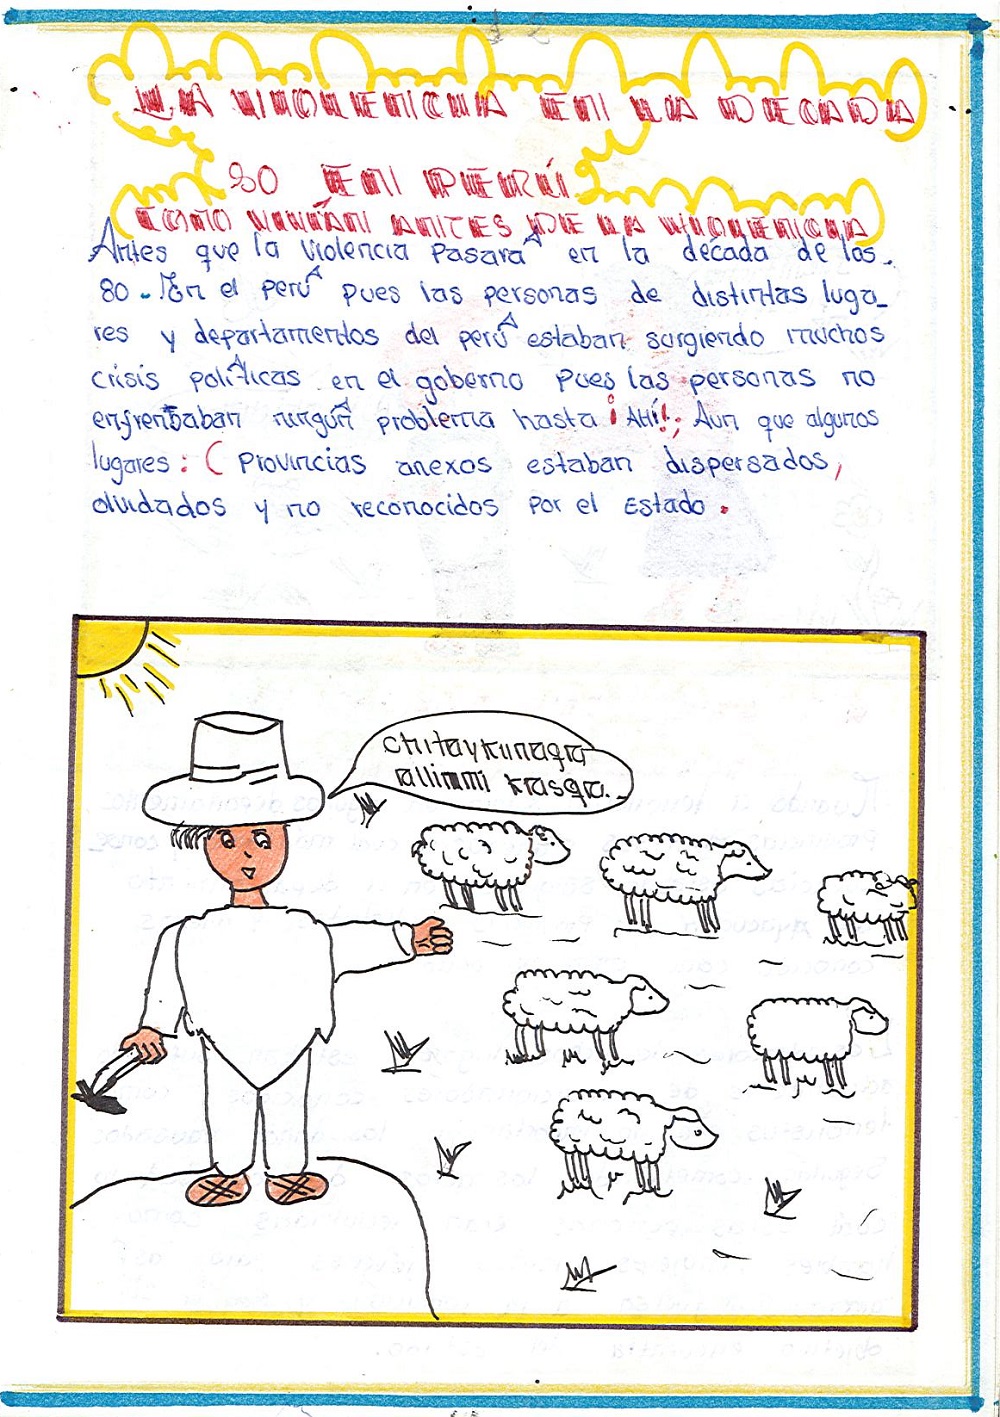 LA VIOLENCIA EN LA DECADA
80 EN PERÚ.
COMO VIVÍAN ANTES DE LA VIOLENCIA
Antes que la violencia pasará en la década de los
80 . En el perú pues las personas de distintas luga_
res y departamentos del perú estaban surgiendo muchos
crisis políticas en el goberno pues las personas no
enfrentaban ningún problema hasta ¡ AHÍ!, Aun que algunos
lugares: ( Provincias anexos estaban dispersados,
olvidados y no reconocidos por el Estado.
chitaykunaqa
allinmi kasqa..